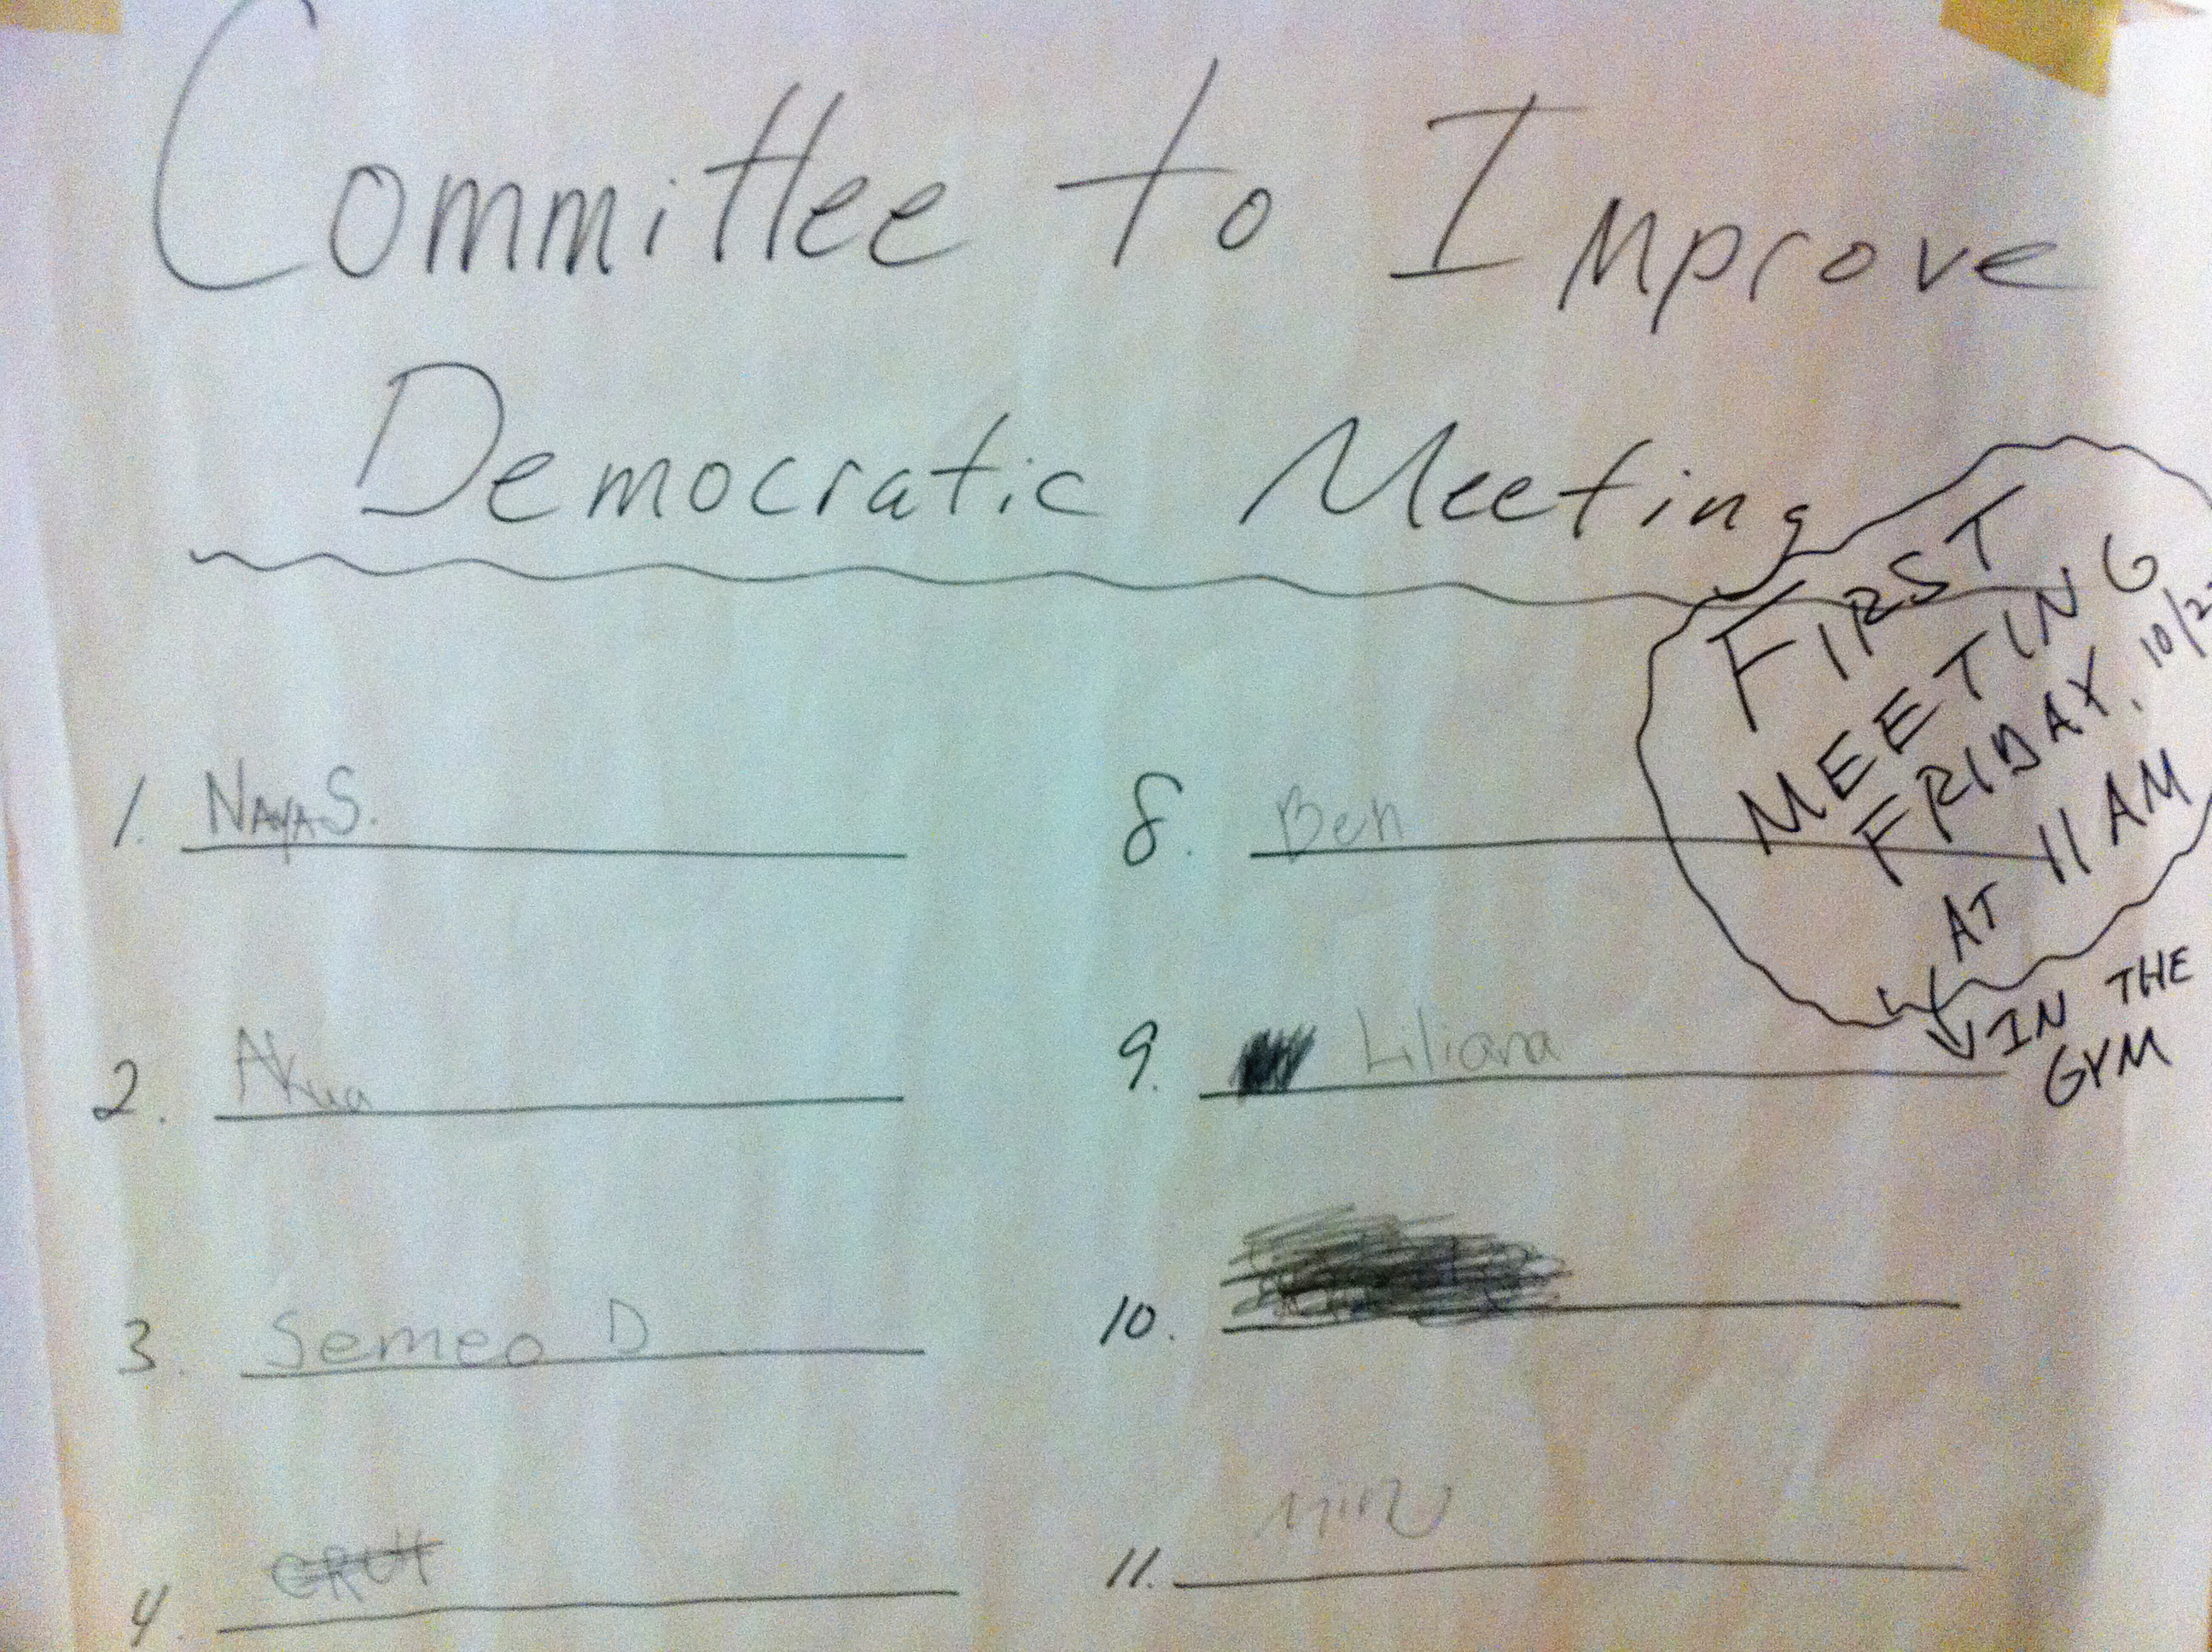 Committee to Improve
Democratic Meeting
FIRST
MEETING
FRIDAY,
AT 11 AM
IN THE
GYM
1. NAYA S.
2. Akua
3. Semeo D
4.
8. Ben
9. Liliana
10.
11.